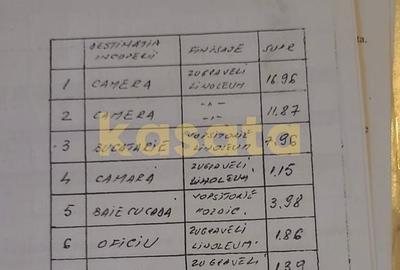 DESTINATIA FINISAJE SUPR
INCOPERII
1 CAMERA ZUGRAVELI LINOLEUM 16.96
2 CAMERA -"- -"- 11.87
3 BUCATARIE VOPSITORIE LINOLEUM 7.96
4 CAMARA ZUGRAVELI LINOLEUM 1.15
5 BAIE CU CADA VOPSITORIE MOZAIC. 3.98
6 OFICIU ZUGRAVELI LINOLEUM 1.86
ZUGRAVELI 1.39
ta.